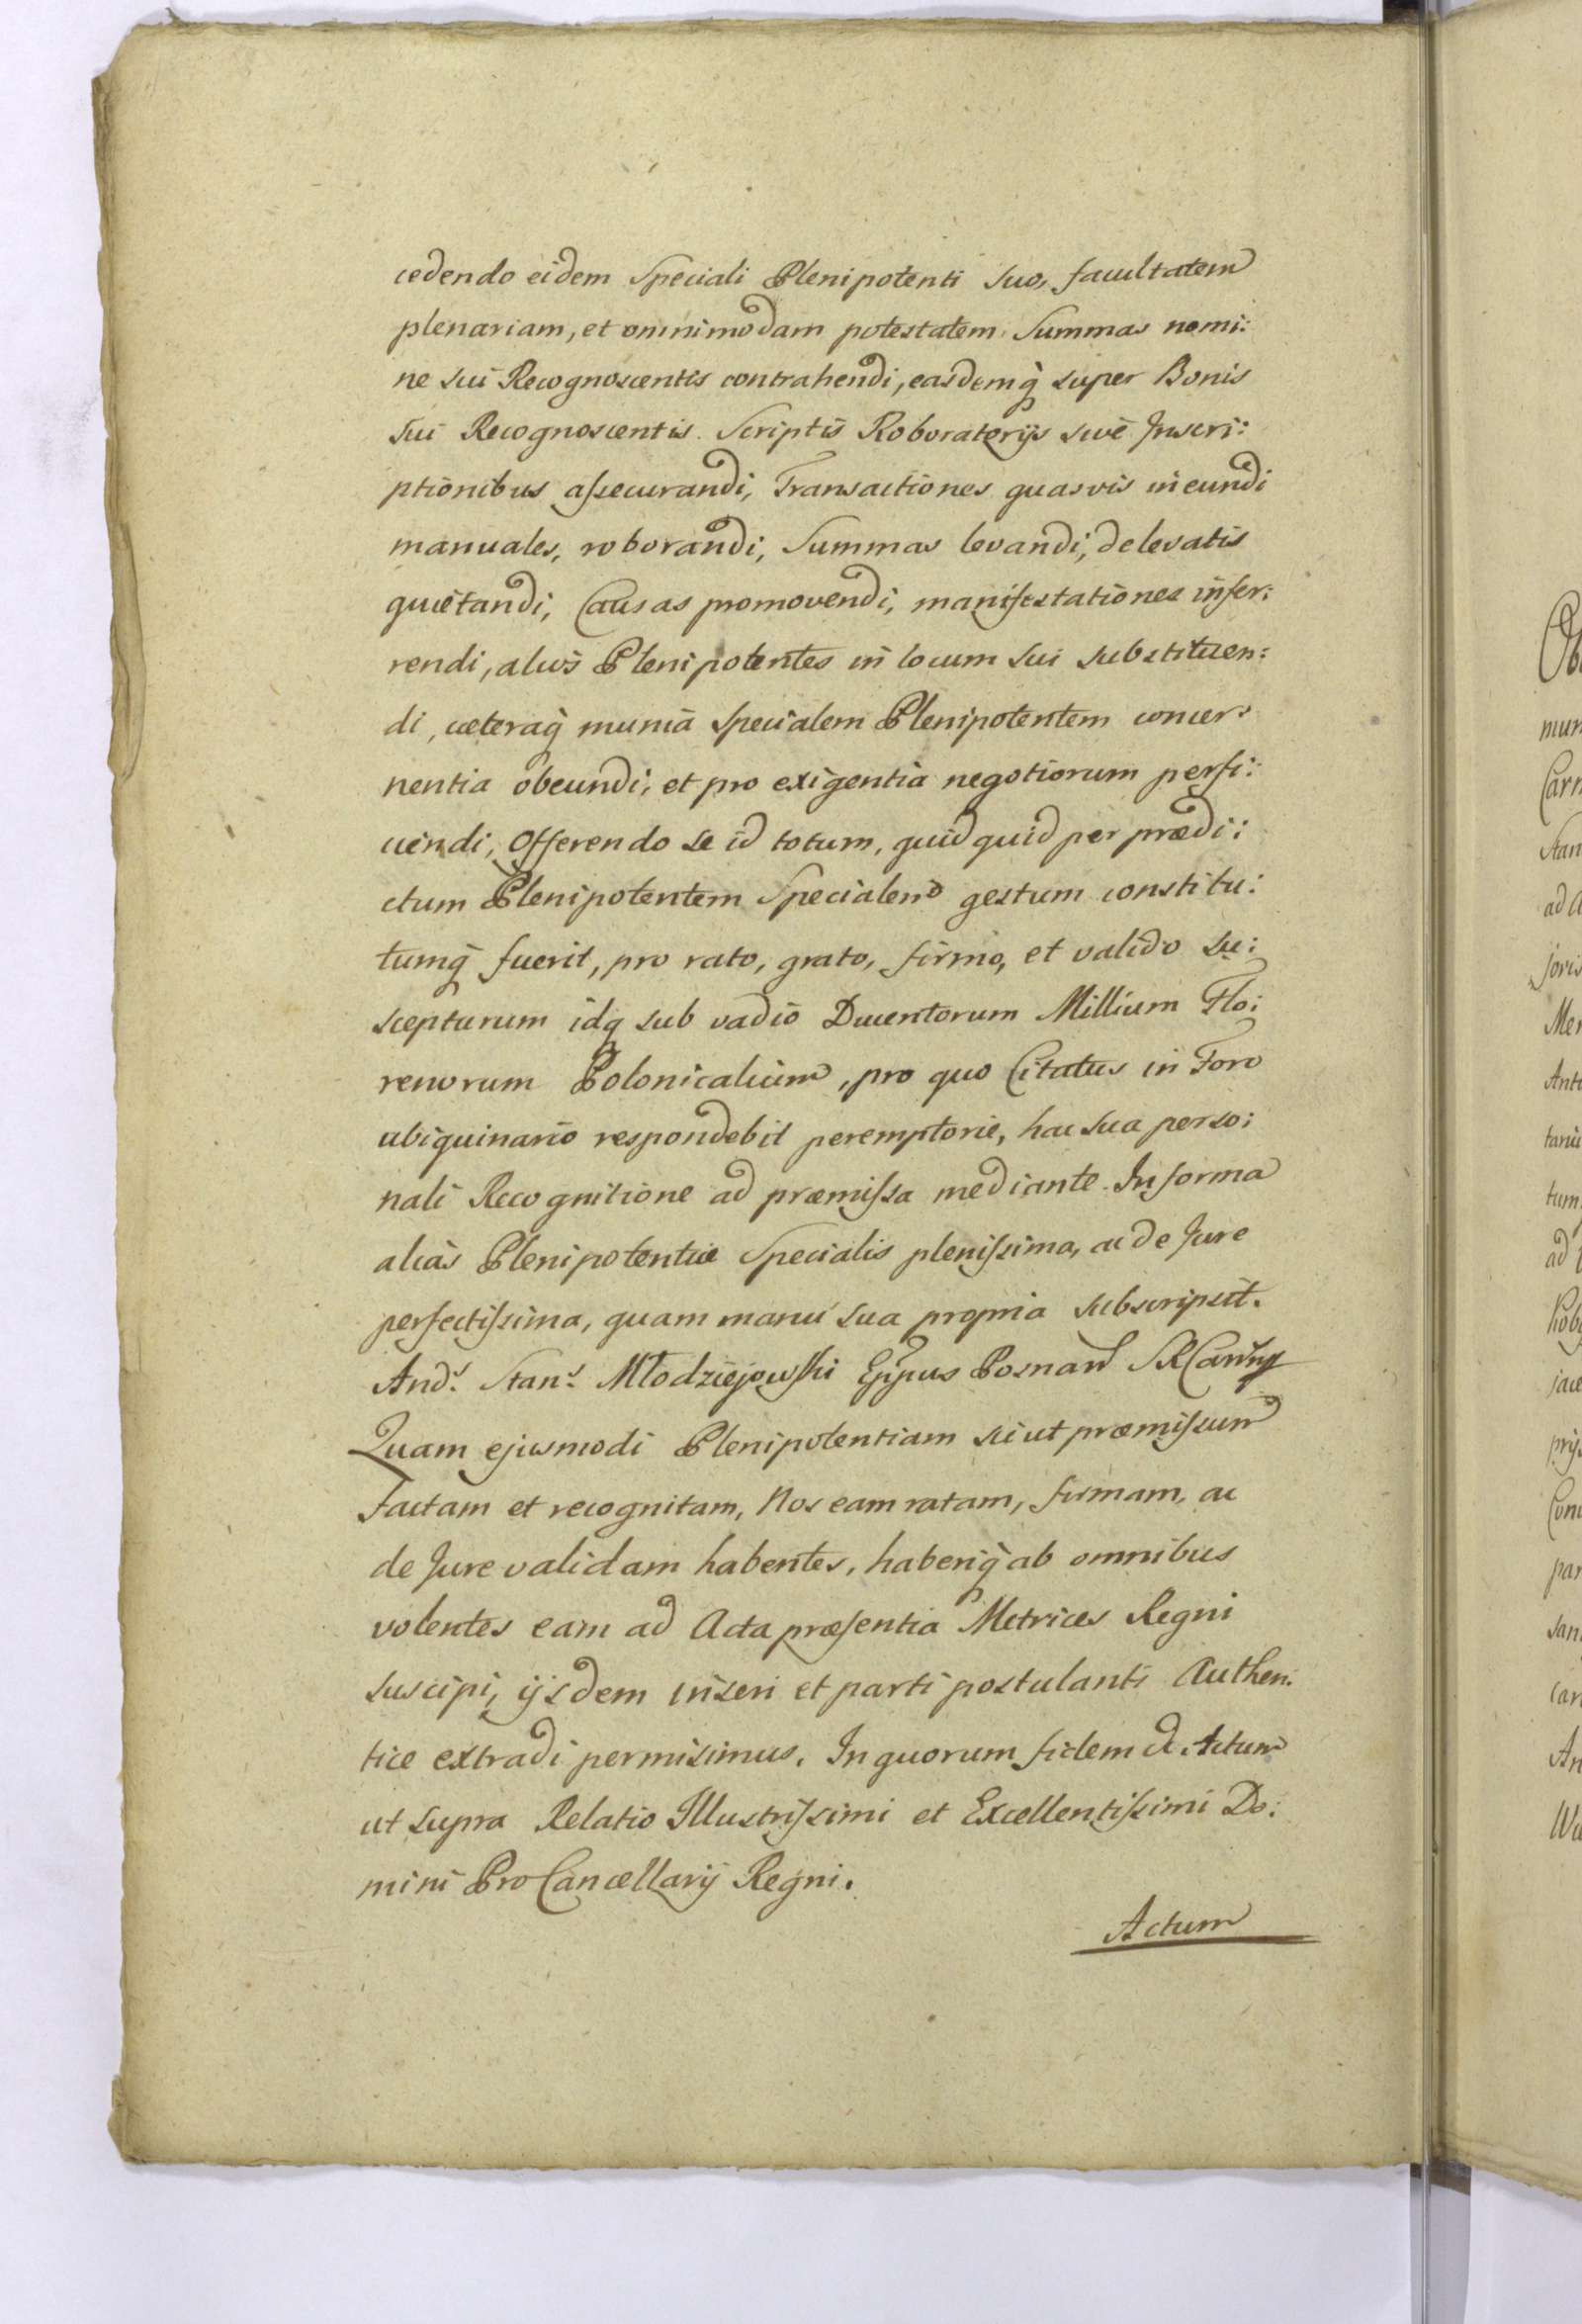 cedendo eidem Speciali Plenipotenti suo, facultatem
plenariam, et omnimodam potestatem Summas nomi:
ne sui Recognoscentis contrahendi, easdemq̀ super Bonis
sui Recognoscentis Scriptis Roboratorijs sive Inscri:
ptionibus assecurandi, Transactiones quasvis ineundi
manuales, roborandi, Summas levandi, de levatis
quietandi, Causas promovendi, manifestationes infer:
rendi, alios Plenipotentes in locum sui substituen:
di, caeteraq̀ munia specialem Plenipotentem concer:
nentia obeundi, et pro exigentia negotiorum perfi:
ciendi, Offerendo se id totum, quidquid per praedi:
ctum Plenipotentem Specialem gestum constitu:
tumq̀ fuerit, pro rato, grato, firmo, et valido su:
scepturum idq sub vadio Ducentorum Millium Flo:
renorum Polonicalium, pro quo Citatus in Foro
ubiquinario respondebit peremptorie, hac sua perso:
nali Recognitione ad praemissa mediante. In forma
alias Plenipotentiae Specialis plenissima, ac de Jure
perfectissima, quam manu sua propria subscripsit.
And. Stan. Młodziejowski Eppus Posnan
Quam ejusmodi Plenipotentiam sicut praemissum
Factam et recognitam, Nos eam ratam, firmam, ac
de Jure validam habentes, haberiq̀ ab omnibus
volentes eam ad Acta praesentia Metrices Regni
suscipi, ijsdem inseri et parti postulanti Authen:
tice extradi permisimus. In quorum fidem &. Actum
ut supra Relatio Illustrissimi et Excellentissimi Do:
mini ProCancellarij Regni.
Actum